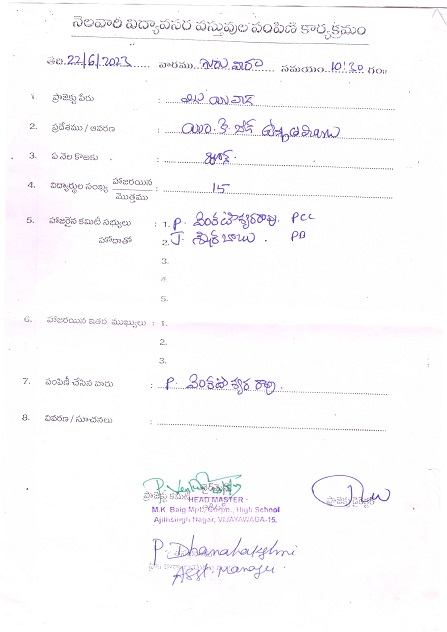 నెలవారి విద్యావసర వస్తువుల పంపిణి కార్యక్రమం
తేది 22/6/2023 వారము గురు వారం సమయం 10:30 గం॥
1. ప్రాజెక్టు పేరు :
2. ప్రదేశము / ఆవరణ :
3. ఏ నెల కొఱకు : జూన్
4. విద్యార్థుల సంఖ్య హాజరయిన / మొత్తము : 15
5. హాజరైన కమిటీ సభ్యులు : 1. P. వెంకటేశ్వరరావు. PCC
హోదాతో 2. J. సుధీర్ బాబు. PD
3.
4.
5.
6. హాజరయిన ఇతర ముఖ్యులు : 1.
2.
3.
7. పంపిణీ చేసిన వారు : P. వెంకటేశ్వర రావు.
8. వివరణ / సూచనలు :
ప్రాజెక్టు కమిటీ
HEAD MASTER
M.K. Baig Mpl. Corpn., High School
Ajithsingh Nagar, VIJAYAWADA-15.
P. Dhanalakshmi
Asst. Manager.